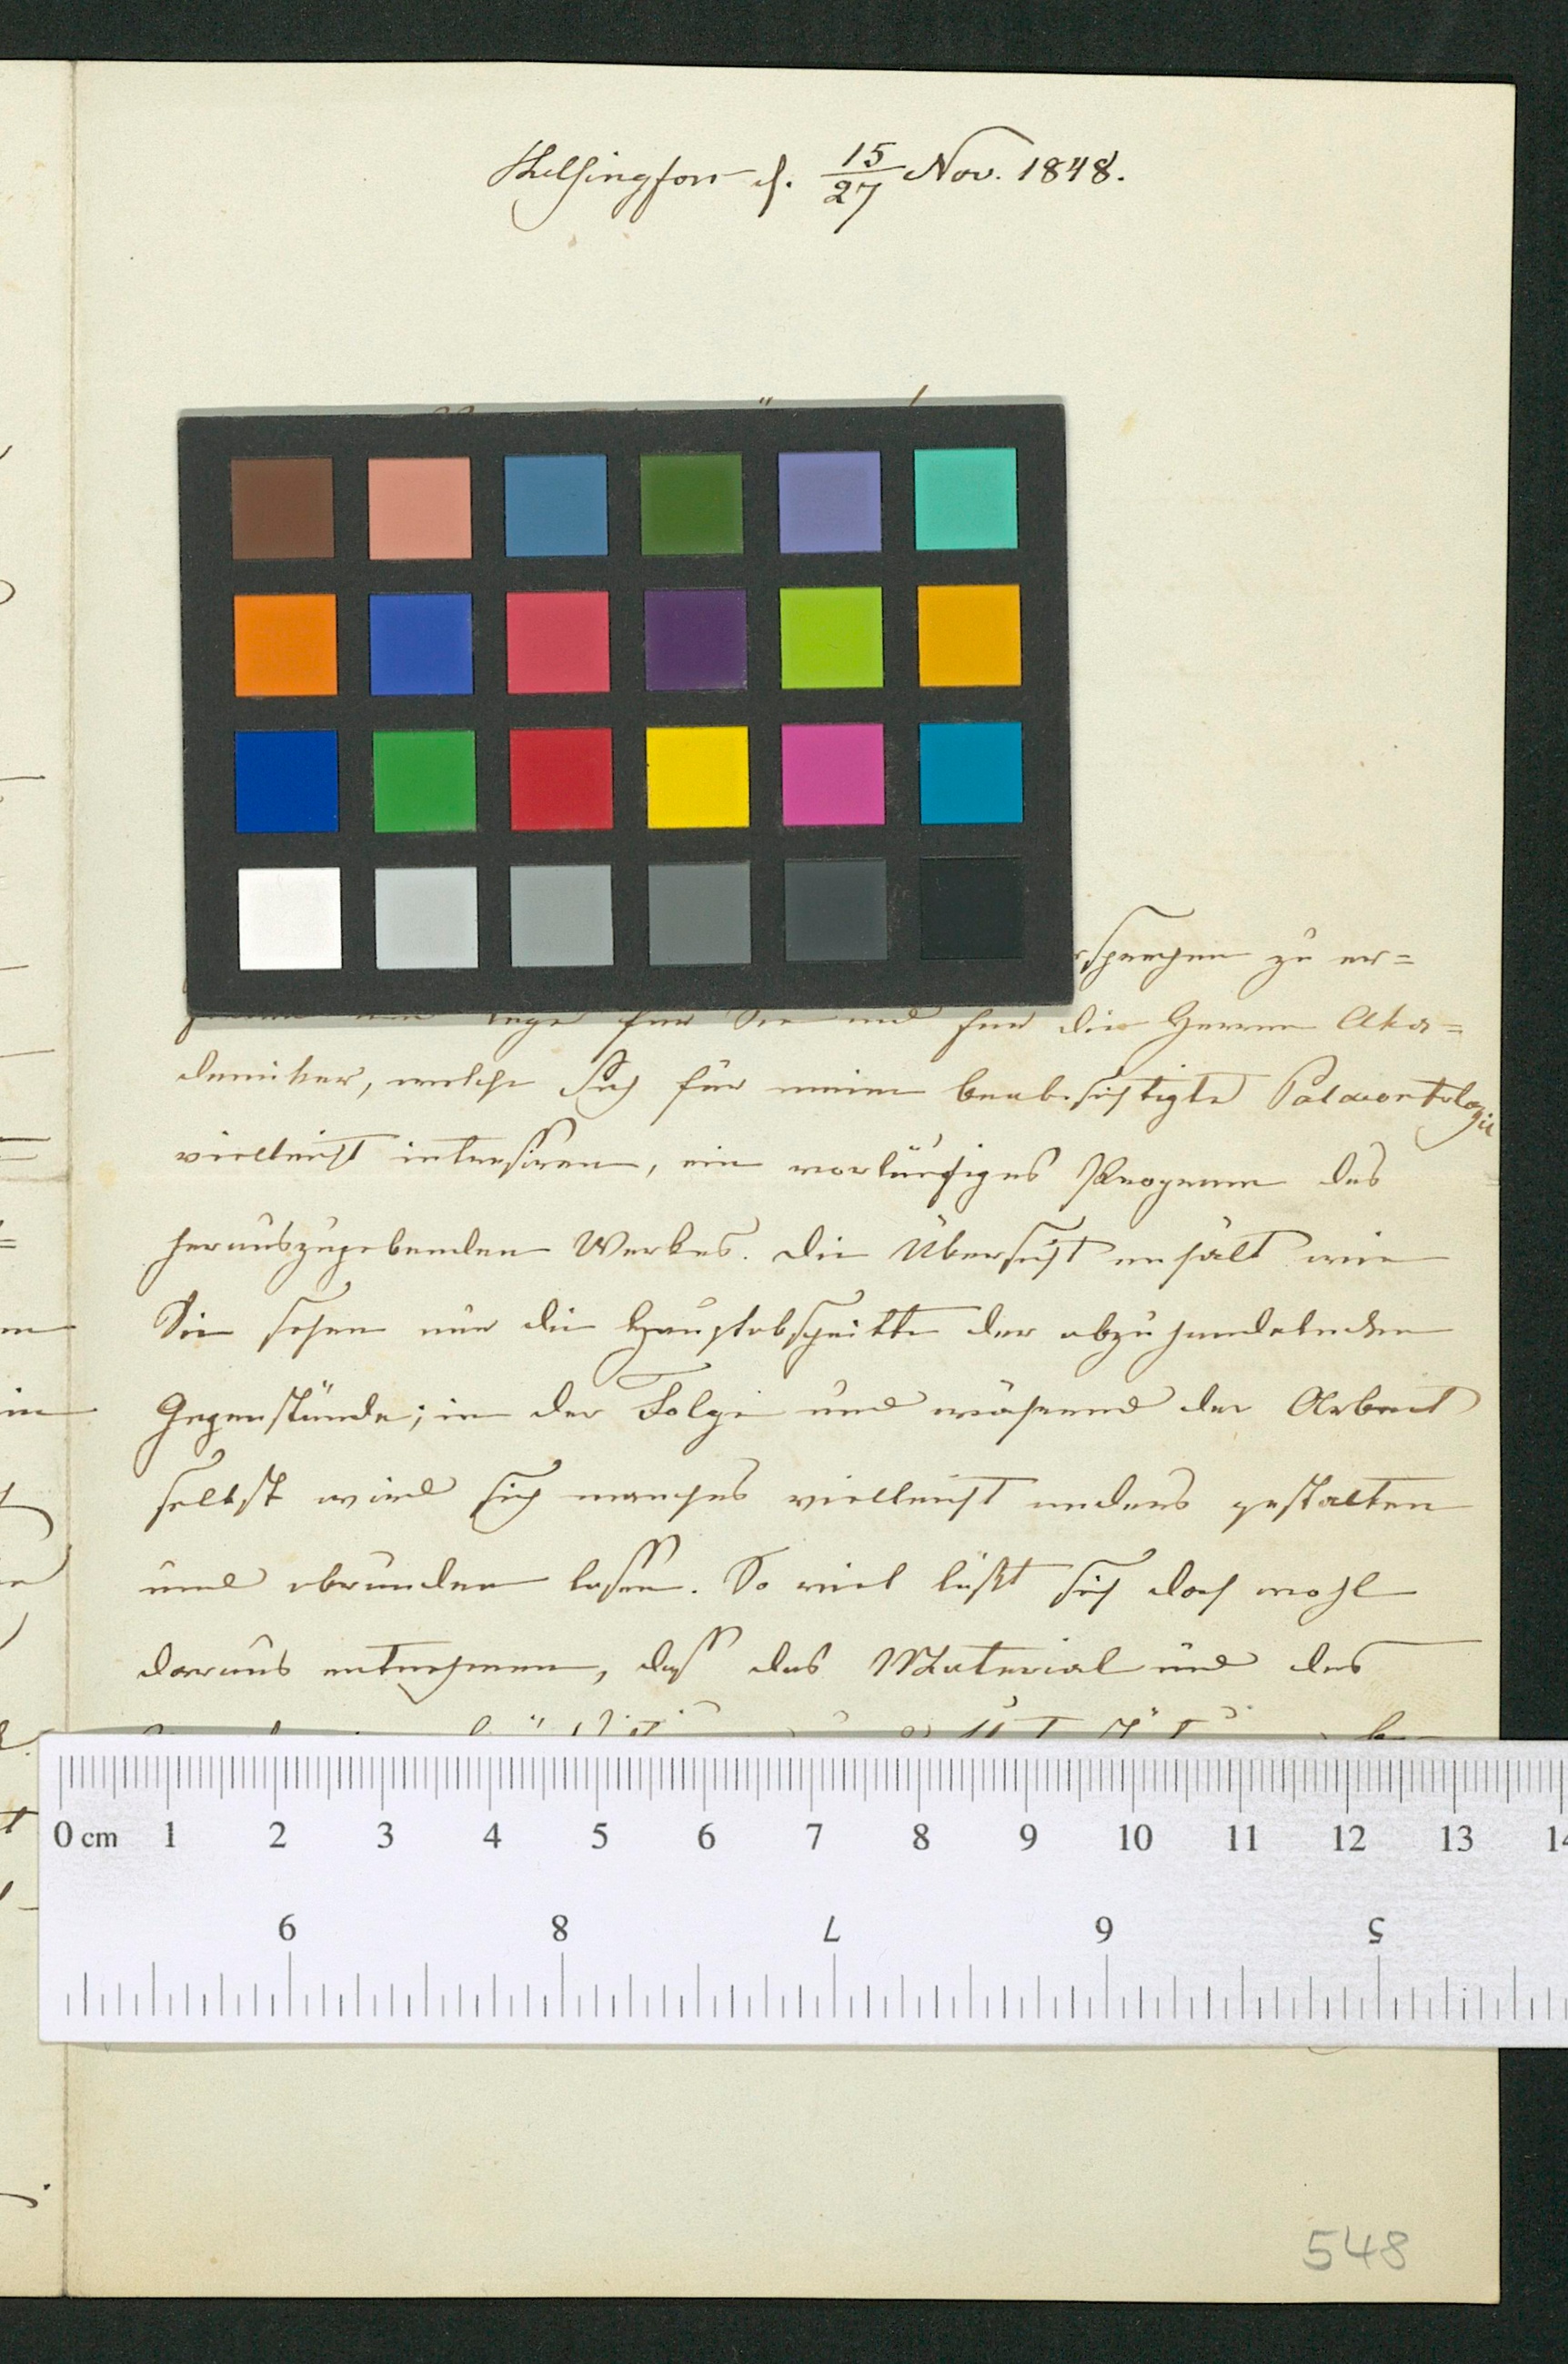 Helsingfors d. 15/27 Nov. 1848.
rsprechen zu er=
lege für Sie und für die Herren Aka=
demiker, welche sich für meine beabsichtigte Palaeontologie
vielleicht interessiren, ein vorläufiges Program des
herauszugebenden Werkes. Die Übersicht enhält wie
Sie sehen nur die Hauptabschnitte der abzuhandelnden
Gegenstände; in der Folge und während der Arbeit
selbst wird sich manches vielleicht anders gestalten
und abrunden lassen. So viel läßt sich doch wohl
daraus entnehmen, dass das Material und des
0 cm 1 2 3 4 5 6 7 8 9 10 11 12 13 14
9 8 7 6 5
548